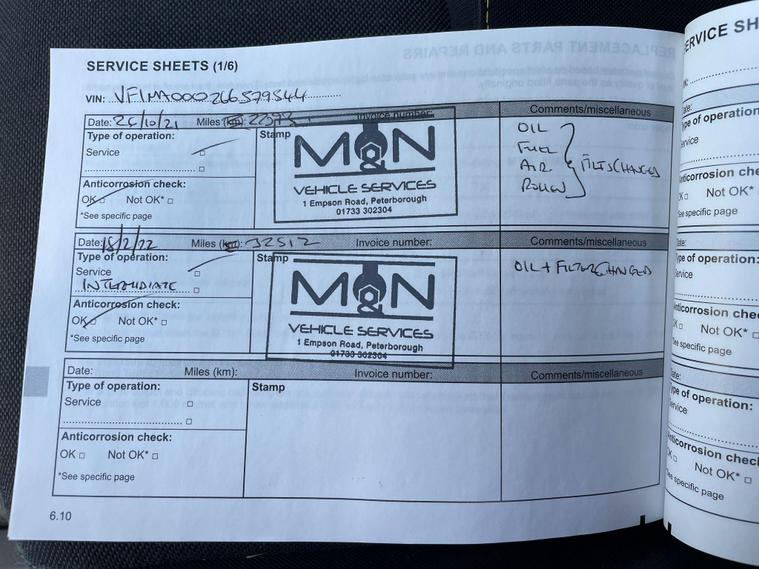 SERVICE SHEETS (1/6)
VIN: VF1MA000266579544
Date: 26/10/21 Miles (km): Invoice number: Comments/miscellaneous
Type of operation: Stamp
Service
Anticorrosion check:
OK Not OK*
*See specific page
M&N
VEHICLE SERVICES
1 Empson Road, Peterborough
01733 302304
OIL
FUEL
AIR
POLLEN
FILTS CHANGED
Date: 15/2/22 Miles (km): 32512 Invoice number: Comments/miscellaneous
Type of operation: Stamp
Service
INTERMIDIATE
Anticorrosion check:
OK Not OK*
*See specific page
M&N
VEHICLE SERVICES
1 Empson Road, Peterborough
01733 302304
OIL + FILTER CHANGED
Date: Miles (km): Invoice number: Comments/miscellaneous
Type of operation: Stamp
Service
Anticorrosion check:
OK Not OK*
*See specific page
6.10
REPLACEMENT PARTS AND REPAIRS
Type of operation:
Service
Not OK*
See specific page
Type of operation:
Service
Anticorrosion
Not OK*
See specific page
Type of operation:
Service
Anticorrosion check
Not OK*
See specific page